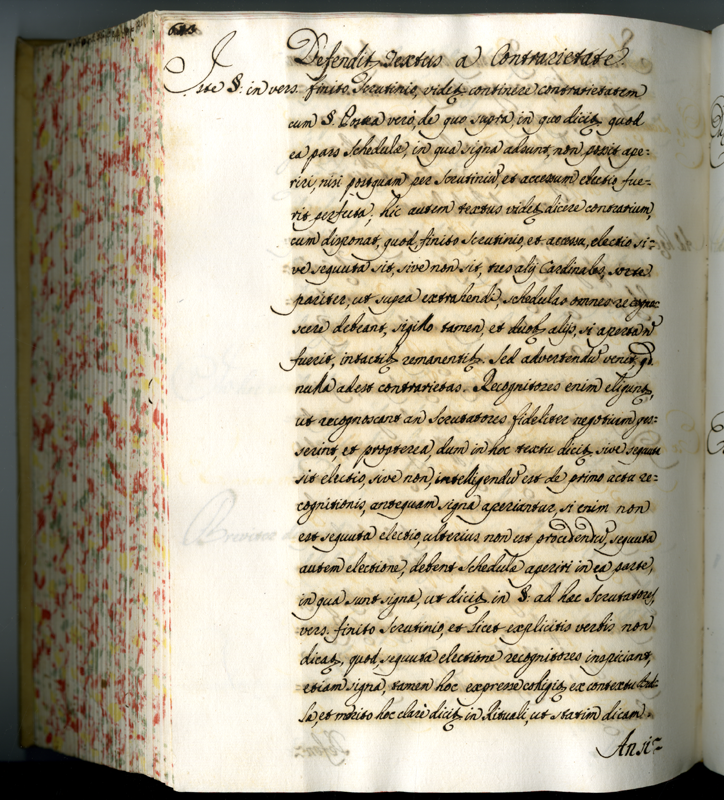 Defendit Textus a Contrarietate.
Iste §. in vers. finito Scrutinio, videt continere contrarietatem
cum §. Postea verò, de quo supra, in quo dicit quod
ea pars Schedulæ, in qua signa adsunt, non possit ape=
riri, nisi postquam per Scrutiniũ, et accessum electio fue=
rit perfecta; hic autem textus videt dicere contrarium,
cum disponat, quod finito Scrutinio, et accessu, electio si=
ve sequuta sit, sive non sit, tres alij Cardinales, sorte
pariter, ut supra extrahendi, schedulas omnes recogno
scere debeant, sigillo tamen, et alijs, si apertũ nõ
fuerit, intactis remanentib. Sed advertendũ venit, qd
nulla adest contrarietas. Recognitores enim eligunt,
ut recognoscant an Scrutatores fideliter negotium ges=
serint, et propterea, dum in hoc textu dicit, sive sequuta
sit electio, sive non, intelligendũ est de primo actu re=
cognitionis, antequam signa aperiantur, si enim non
est sequuta electio, ulterius non est procedendũ, sequuta
autem electione, debent schedulæ aperiri in ea parte,
in qua sunt signa, ut dicit in §. ad hæc Scrutatores,
vers. finito Scrutinio, et licet explicitis verbis non
dicat, quod sequuta electione recognitores inspiciant,
etiam signa, tamen hoc expresse coligit ex contextu
et merito hoc clarè dicit in Rituali, ut statim dicam.
An si=